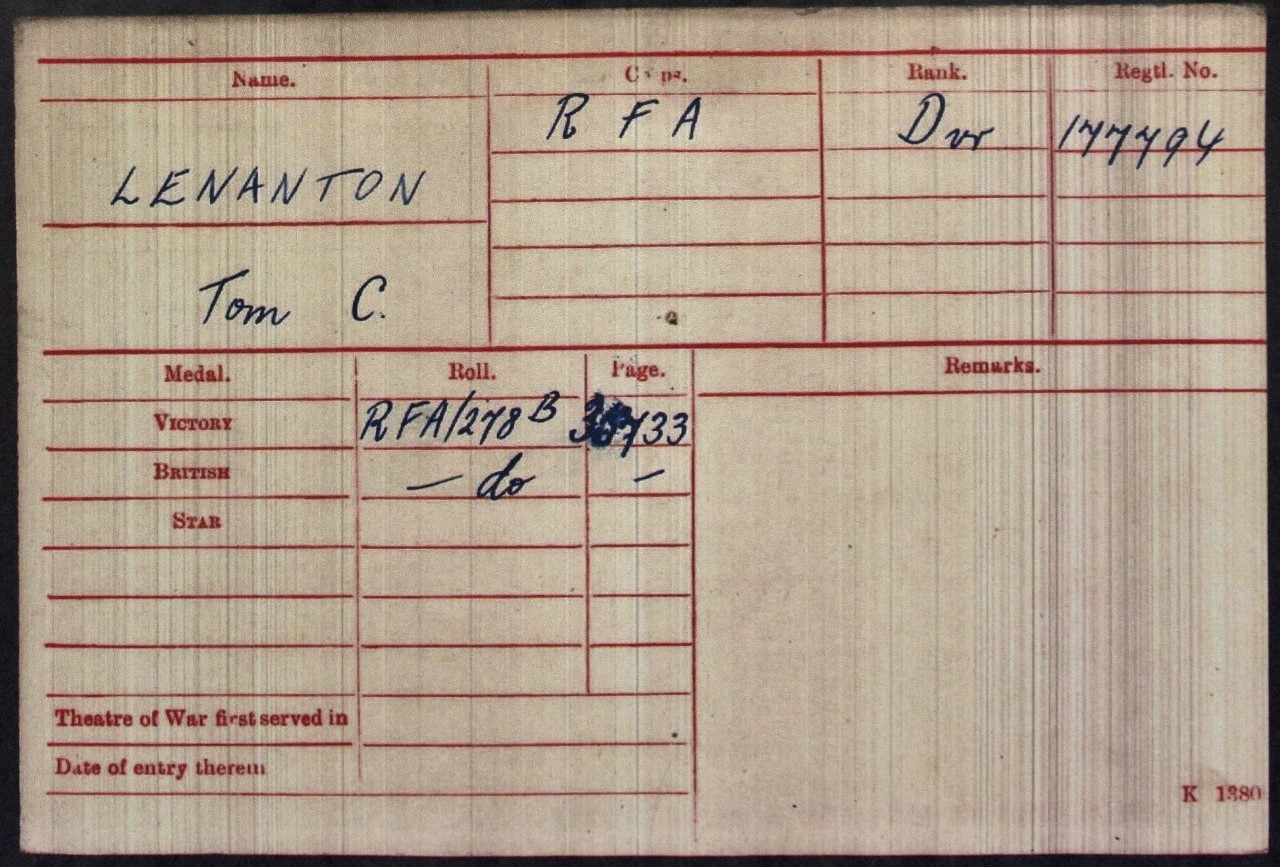 Name. Corps. Rank. Regtl. No.
R F A Dvr 177794
LENANTON
Tom C.
Medal. Roll. Page. Remarks.
VICTORY RFA/278 B 733
BRITISH — do —
STAR
Theatre of War first served in
Date of entry therein
K 1380